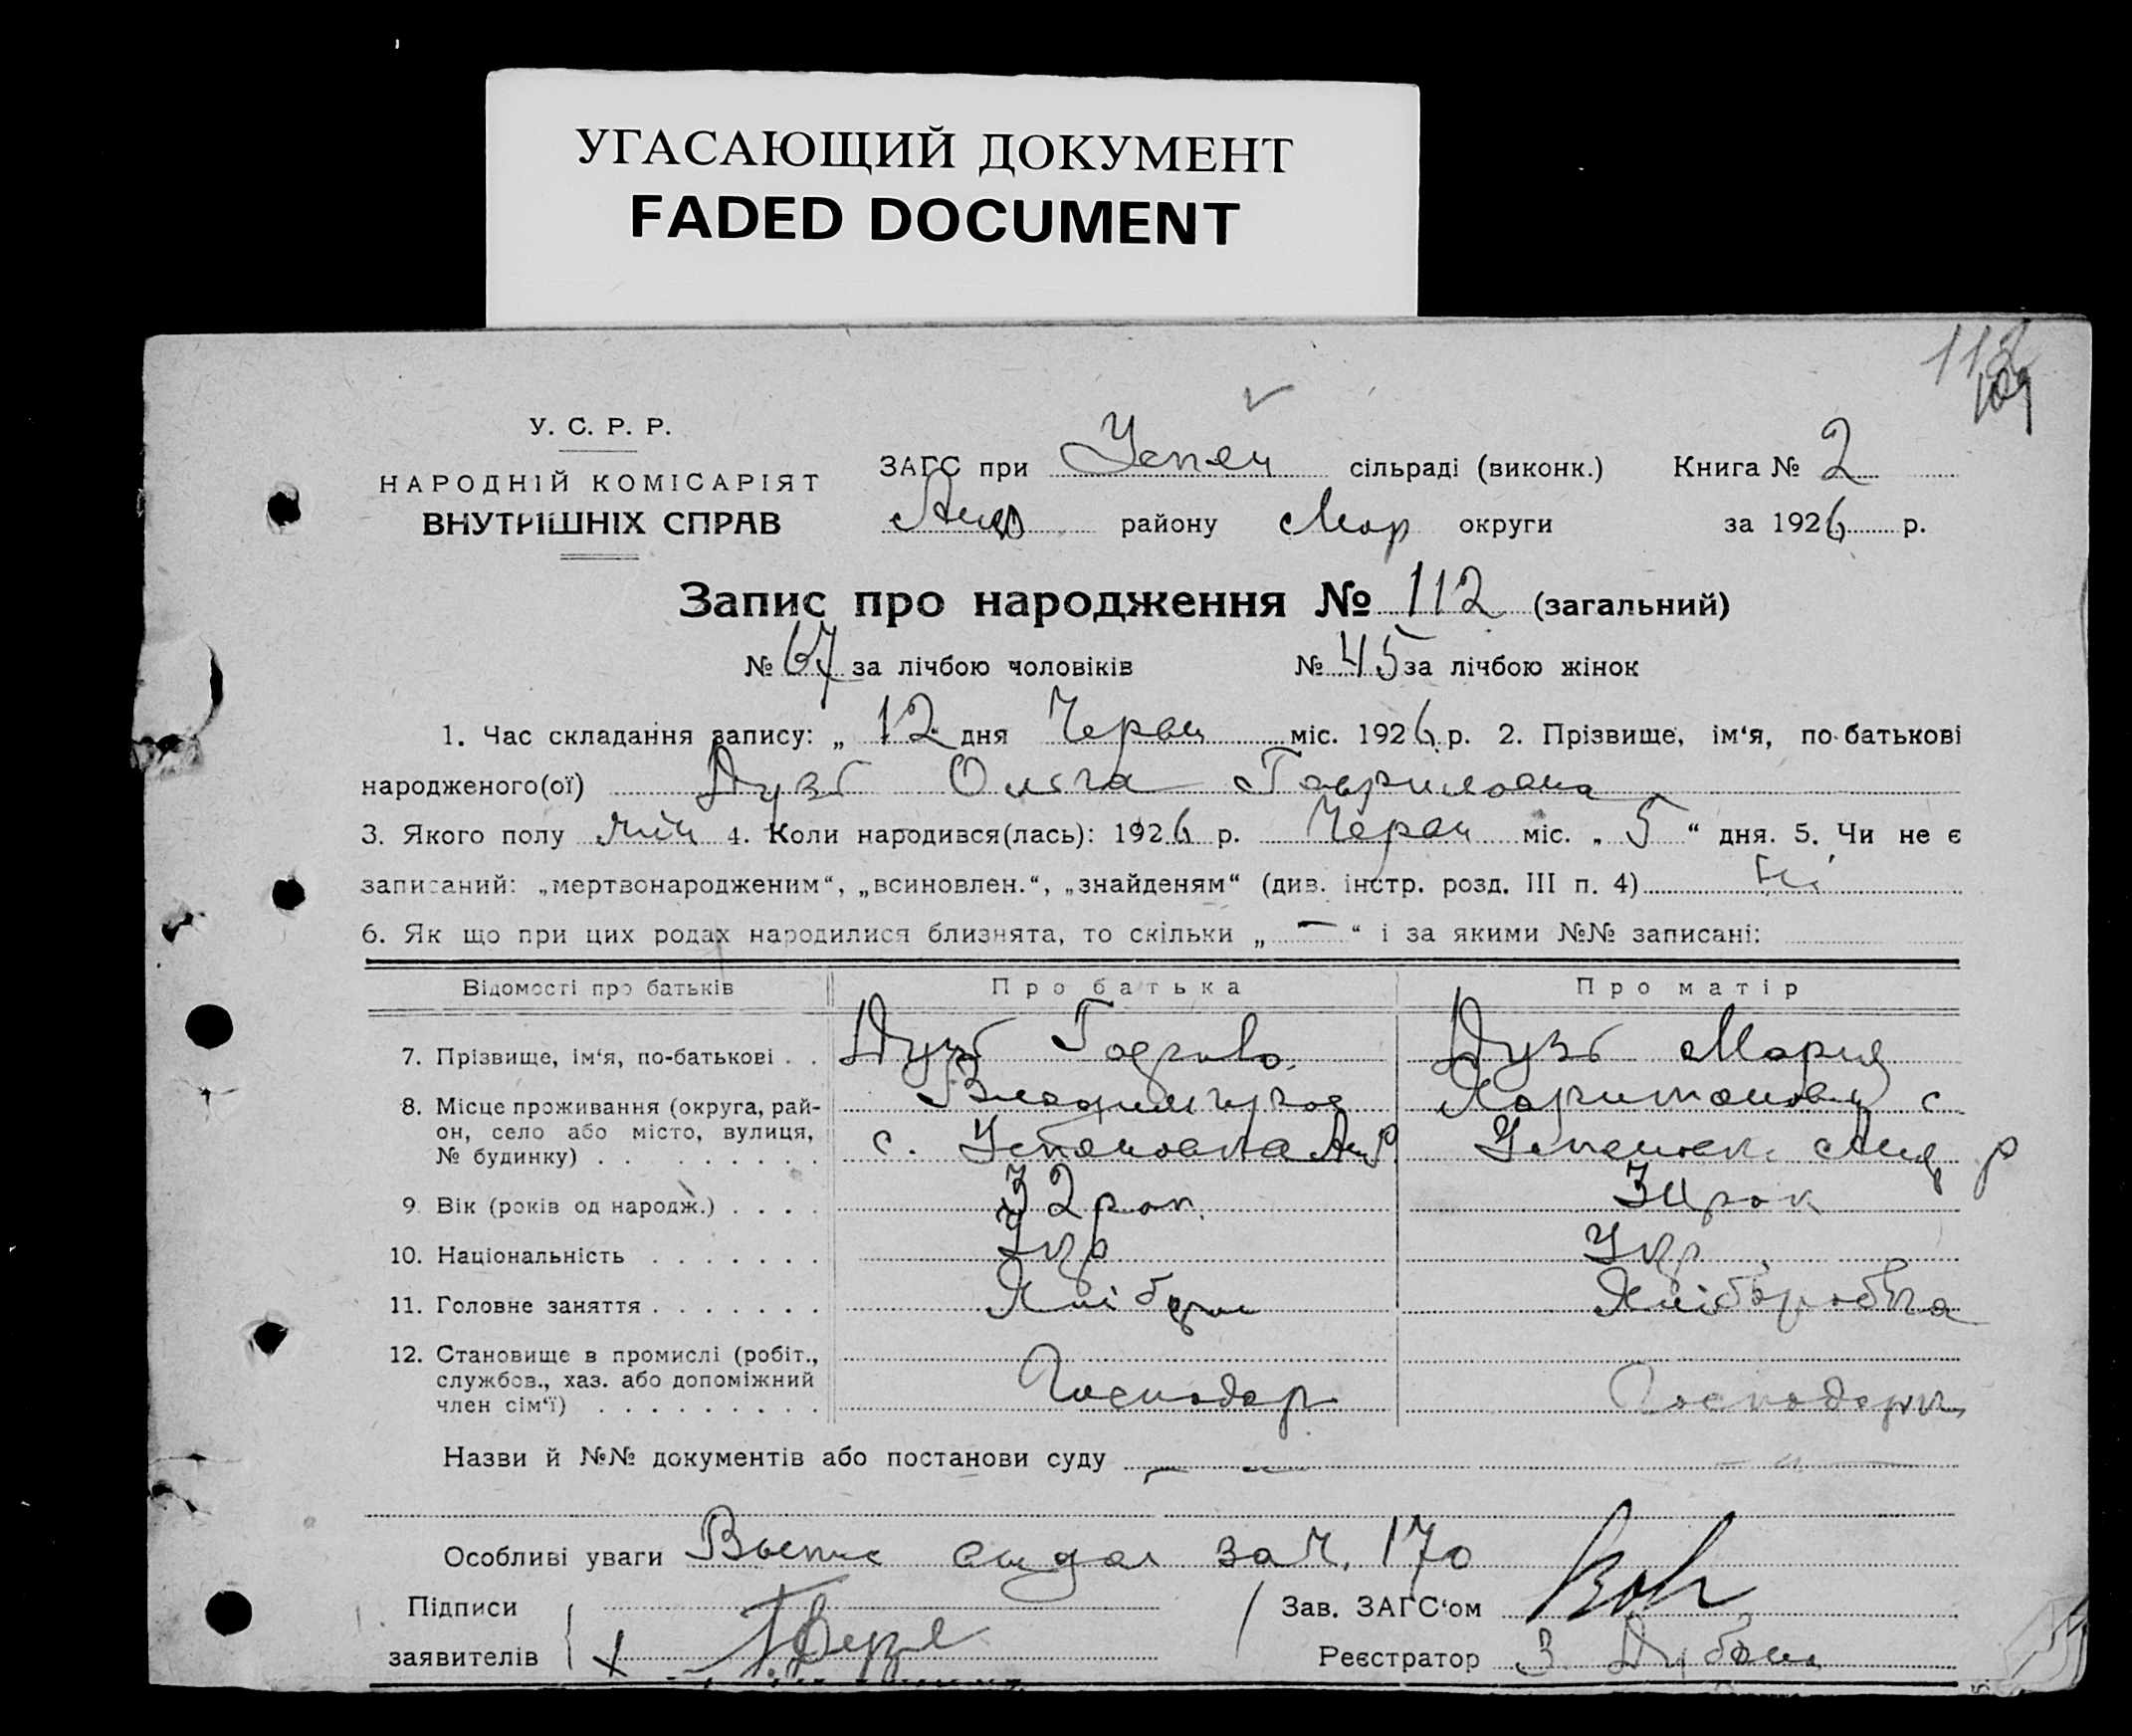 УГАСАЮЩИЙ ДОКУМЕНТ
FADED DOCUMENT
У. С. Р. Р.
НАРОДНІЙ КОМІСАРІЯТ
ВНУТРІШНІХ СПРАВ
ЗАГС при сільраді (виконк.) Книга № 2
району Мар округи за 1926 р.
Запис про народження № 112 (загальний)
№ 67 за лічбою чоловіків № 45 за лічбою жінок
1. Час складання запису: „ 12 дня Червц міс. 1926 р. 2. Прізвище, ім‘я, по-батькові
народженого(ої) Дузь Ольга Гавриловна
3. Якого полу жін 4. Коли народився(лась): 1926 р. Червц міс. „ 5 “ дня. 5. Чи не є
записаний: „мертвонародженим“, „всиновлен.“, „знайденям“ (див. інстр. розд. III п. 4) Ні
6. Як що при цих родах народилися близнята, то скільки „ — “ і за якими №№ записані:
Відомості про батьків Про батька Про матір
7. Прізвище, ім‘я, по-батькові . . Дузь Гаврило Дузь Мария
8. Місце проживання (округа, рай- Харитоновна с
он, село або місто, вулиця, с.
№ будинку) . . . . . . . .
9. Вік (років од народж.) . . . . 32 рок.
10. Національність . . . . . . . Укр Укр
11. Головне заняття . . . . . . . Хліборобка
12. Становище в промислі (робіт.,
службов., хаз. або допоміжний Господар
член сім‘ї) . . . . . . . . .
Назви й №№ документів або постанови суду — —
Особливі уваги за ч. 170
Підписи Зав. ЗАГС‘ом
заявителів Реєстратор